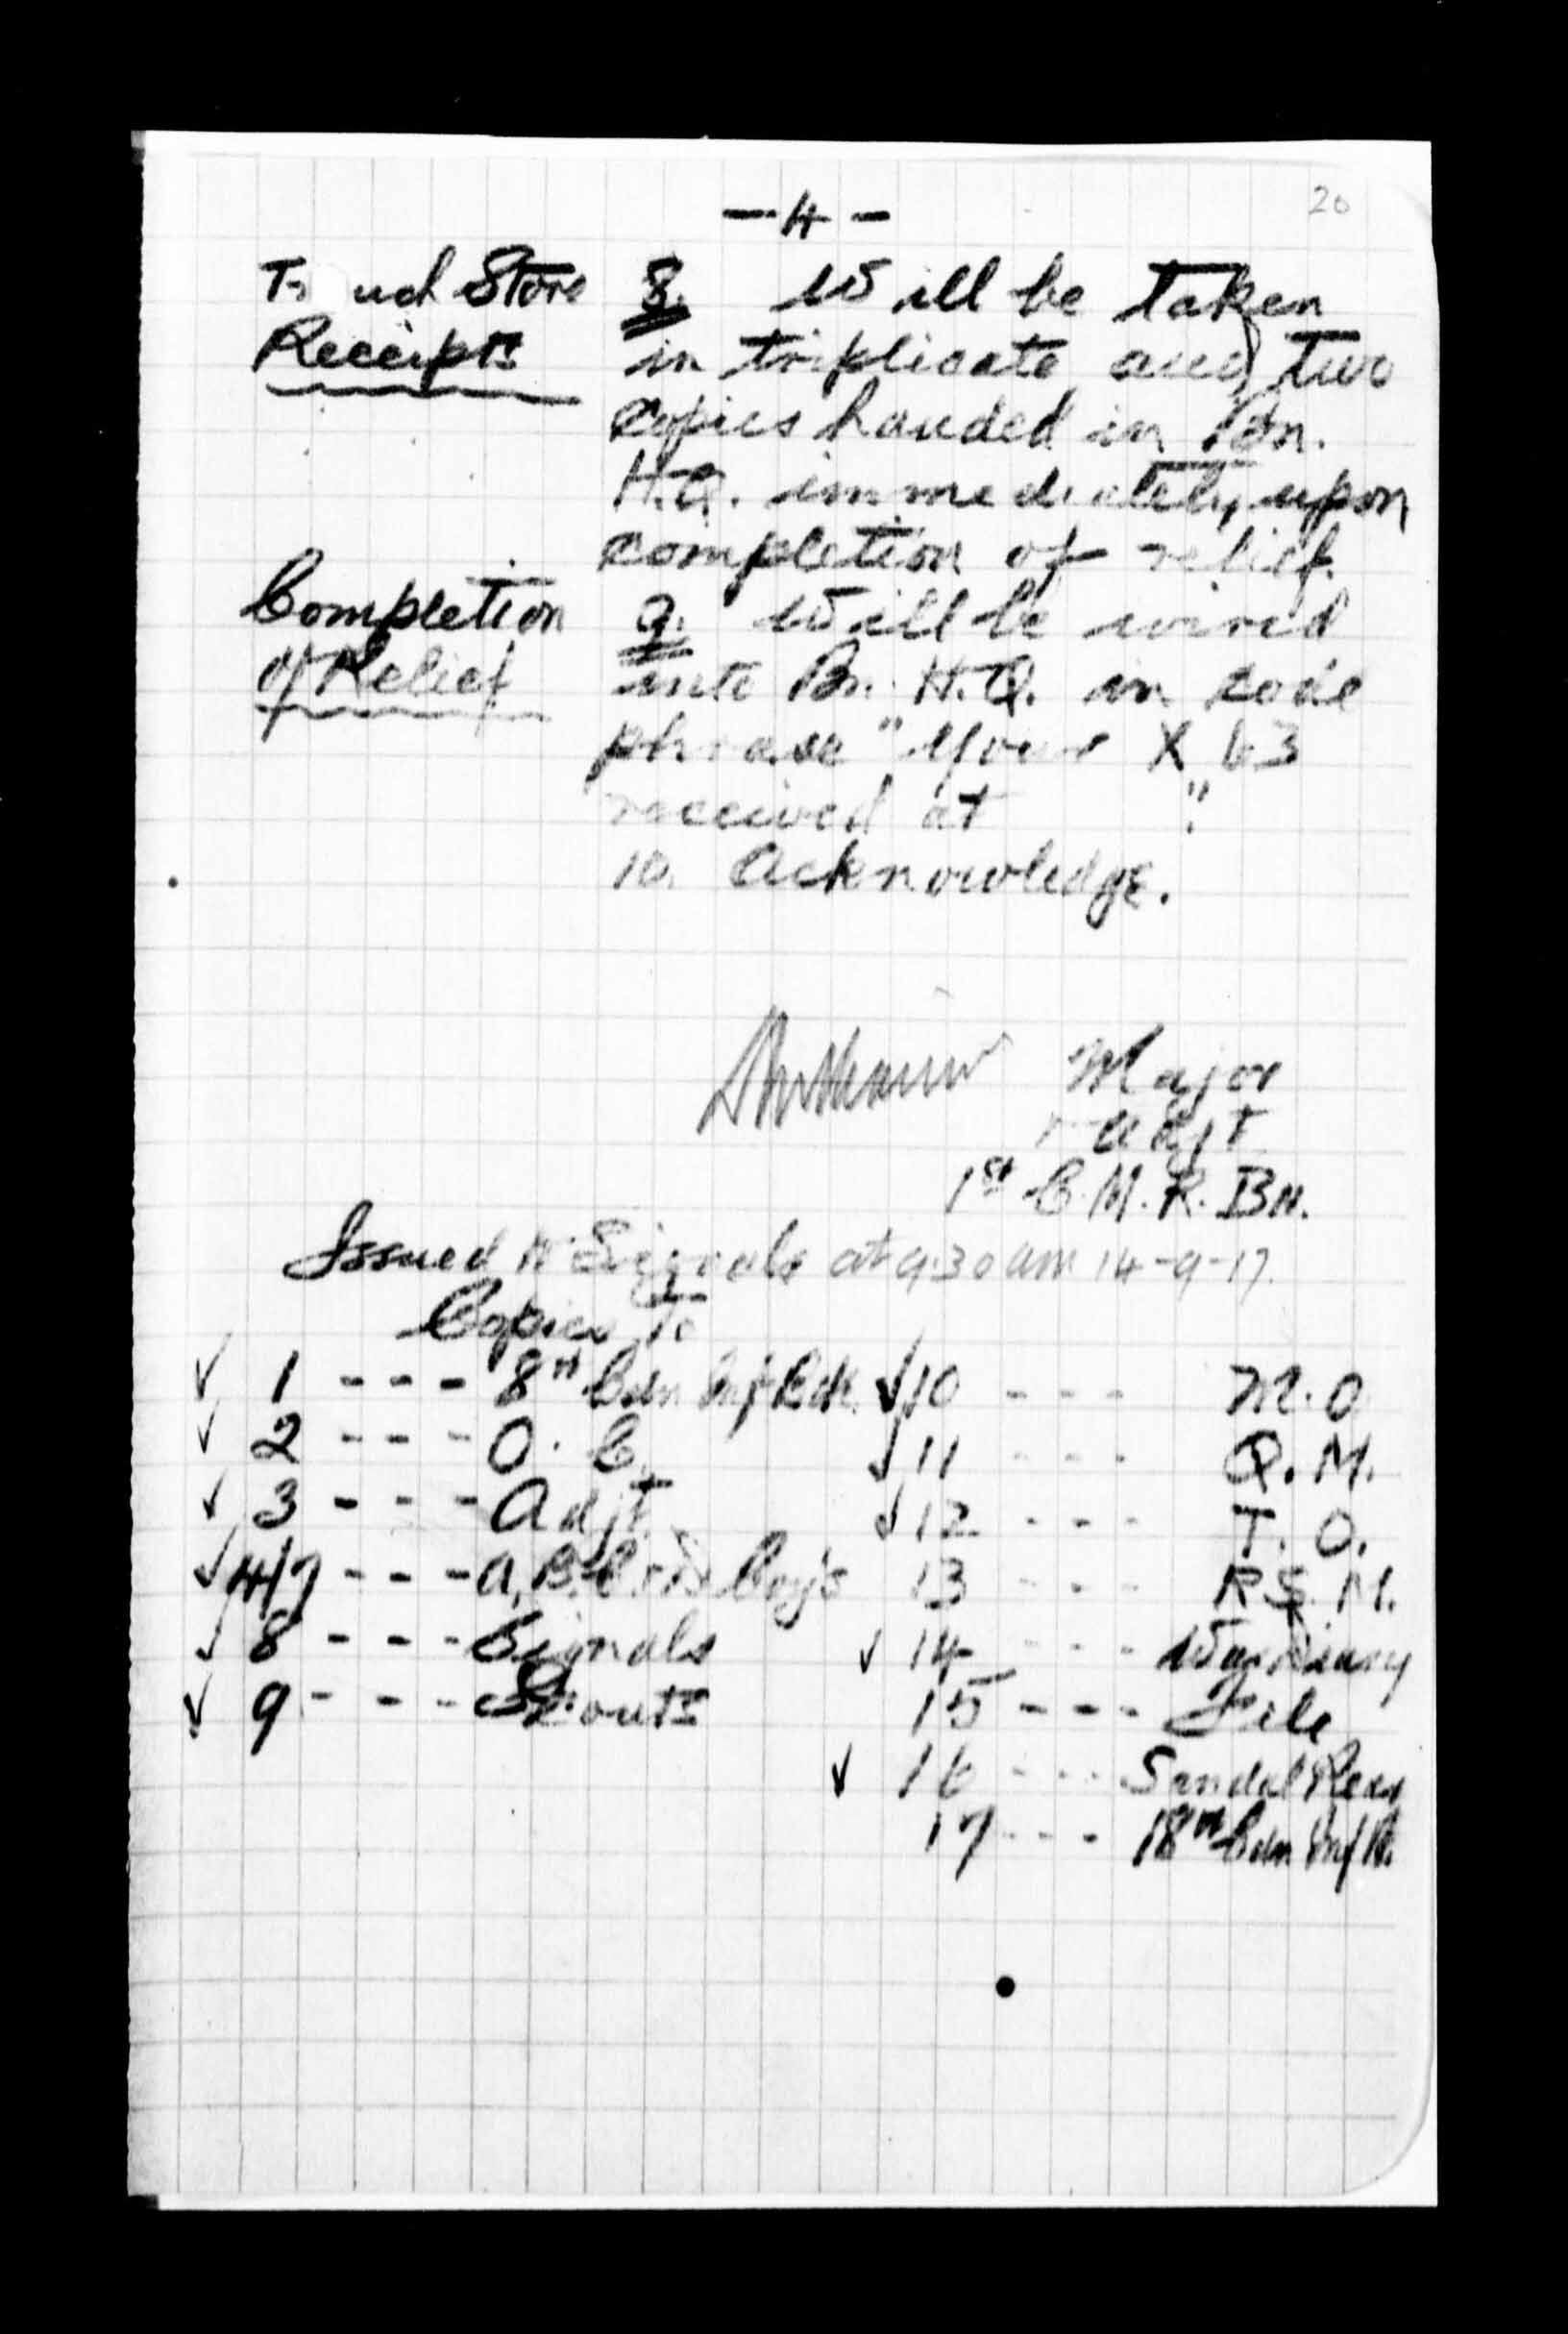 20
— 4 —
Store 8. Will be taken
Receipts in triplicate and two
copies handed in Bn.
H.Q. immediately upon
completion of relief.
Completion 9. Will be wired
of Relief into Bn. H.Q. in code
phrase "Your X 63
received at "
10. Acknowledge.
Major
Adjt
1st C.M.R. Bn.
Issued to Signals at 9.30 am 14-9-17.
Copies To
✓ 1 --- 8th Cdn Inf Bde. ✓ 10 --- M.O
✓ 2 --- O.C. ✓ 11 --- Q.M.
✓ 3 --- Adjt. ✓ 12 --- T.O.
✓ 4/7 --- A, B, C & D Coys 13 --- R.S.M.
✓ 8 --- Signals ✓ 14 --- War Diary
✓ 9 --- Scouts 15 --- File
✓ 16 --- 
17 --- 18th Cdn Inf Bn.